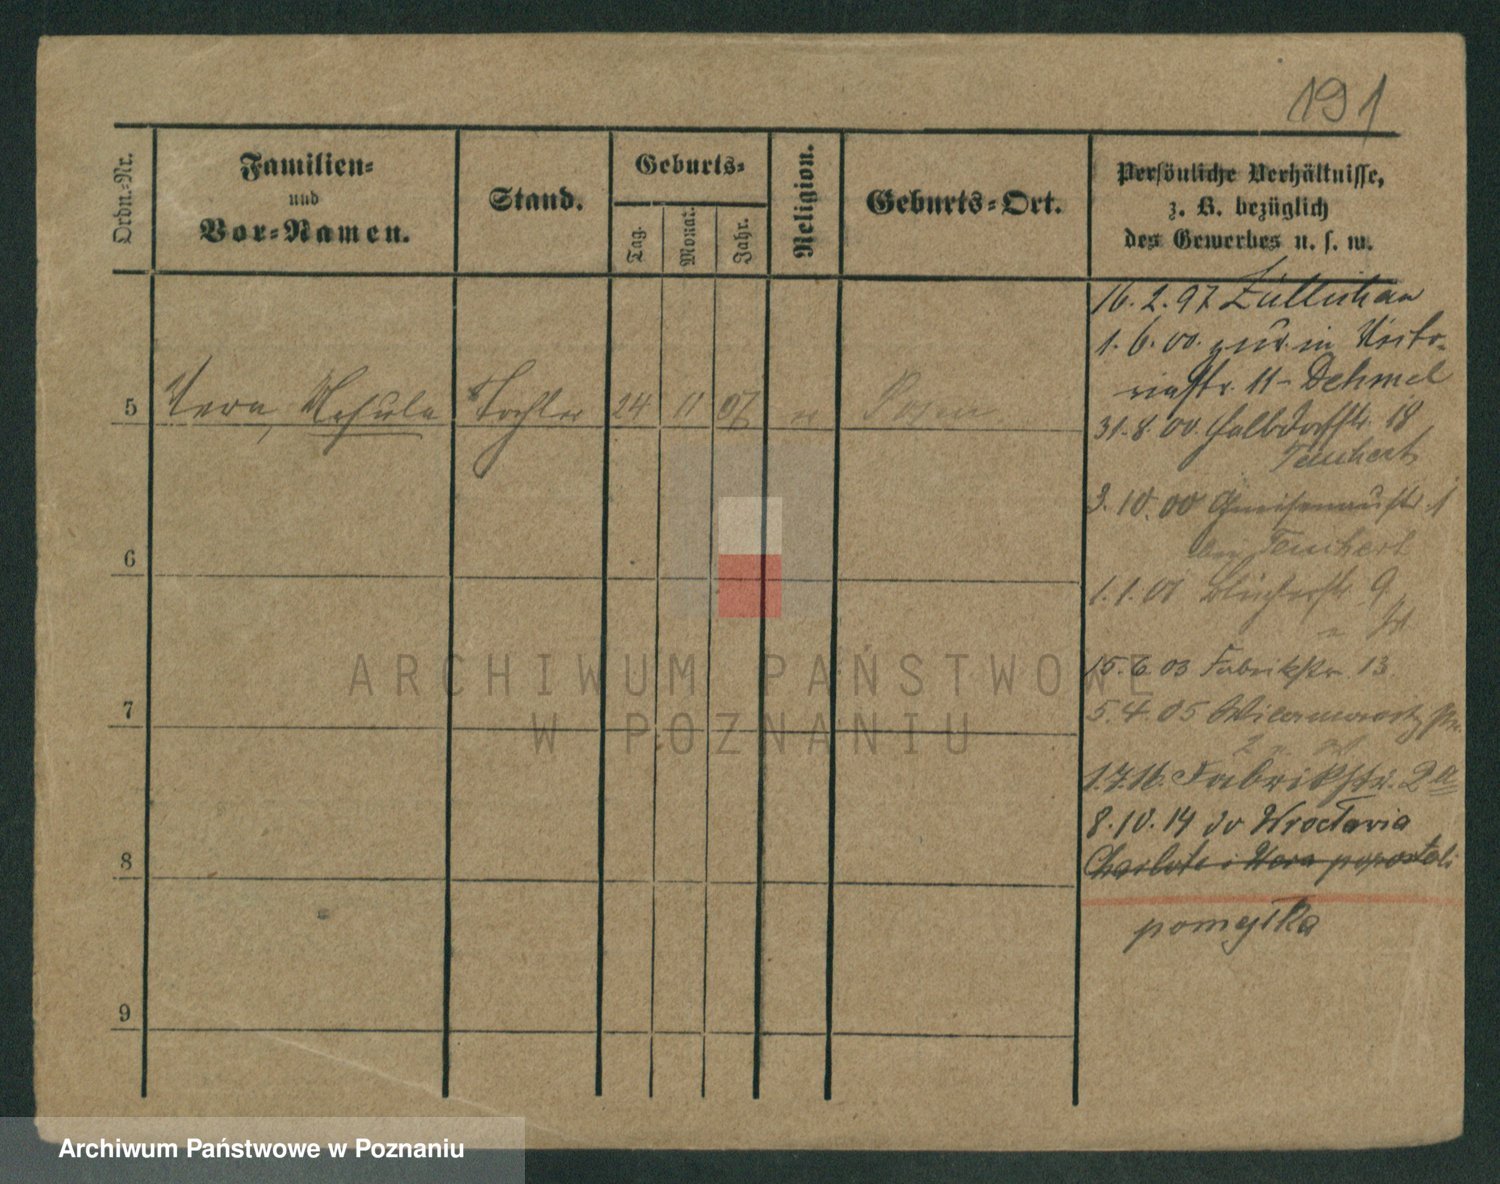 191
Ordn.-Nr.
Familien-
und
Vor-Namen.
Stand.
Geburts-
Tag.
Monat.
Jahr.
Religion.
Geburts-Ort.
Persönliche Verhältnisse,
z. B. bezüglich
des Gewerbes u. s. w.
16. 2. 97 Züllichau
1. 6. 00. nur in Victo-
riastr. 11 - Dehmel
5 Vera, Ursula Tochter 24 11 07 Posen
31. 8. 00. 18
Teuchert
3. 10. 00 Gneisenaustr. 1
bei Teuchert
6
1. 1. 01 Blücherstr. 9
15. 6. 03 Fabrikstr. 13
7
5. 4. 05
2
1. 7. 16. Fabrikstr. 2a
8. 10. 14 do Wrocławia
8
Charlote i Wera pozostali
pomyłka
9
ARCHIWUM PAŃSTWOWE
W POZNANIU
Archiwum Państwowe w Poznaniu